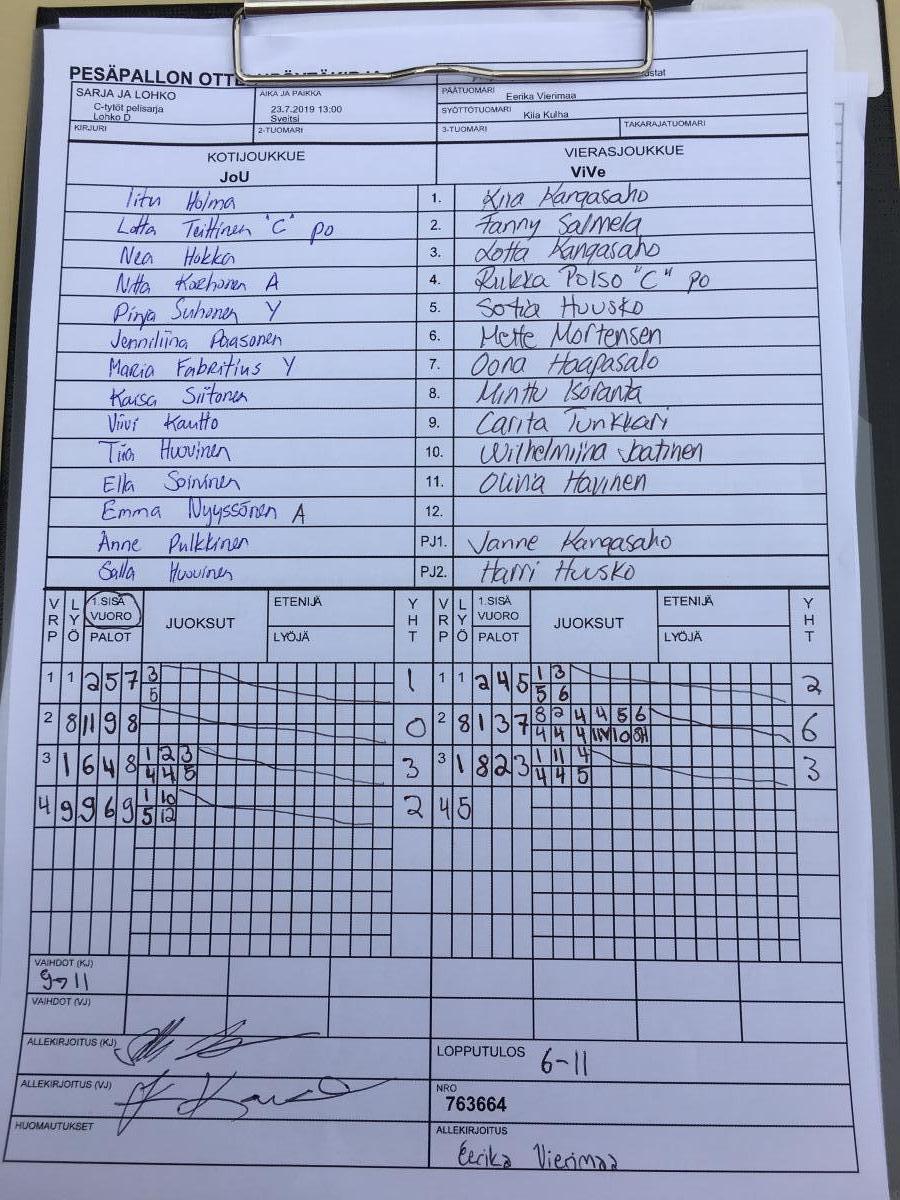 PESÄPALLON OTTE
SARJA JA LOHKO
C-tytöt pelisarja
Lohko D
AIKA JA PAIKKA
23.7.2019 13:00
Sveitsi
PÄÄTUOMARI
Eerika Vierimaa
SYÖTTÖTUOMARI
Kiia Kulha
KIRJURI
2-TUOMARI
3-TUOMARI
TAKARAJATUOMARI
KOTIJOUKKUE
VIERASJOUKKUE
JoU
ViVe
Iitu Holma 1. Kiia Kangasaho
Lotta Teittinen "C" po 2. Fanny Salmela
Nea Hokka 3. Lotta Kangasaho
Nitta Korhonen A 4. Rukka Polso "C" po
Pinja Suhonen Y 5. Sofia Huusko
Jenniliina Paasonen 6. Mette Mortensen
Maria Fabritius Y 7. Oona Haapasalo
Kaisa Siitonen 8. Minttu Isoranta
Viivi Kautto 9. Carita Tunkkari
Tiia Huovinen 10. Wilhelmiina Joatinen
Ella Soininen 11. Olivia Havinen
Emma Nyyssönen A 12.
Anne Pulkkinen PJ1. Janne Kangasaho
Salla Huovinen PJ2. Harri Huusko
VRP LYÖ 1.SISÄ VUORO PALOT JUOKSUT ETENIJÄ LYÖJÄ YHT VRP LYÖ 1.SISÄ VUORO PALOT JUOKSUT ETENIJÄ LYÖJÄ YHT
1 1 2 5 7 3 1 1 1 2 4 5 1 3 2
5 5 6
2 8 11 9 8 0 2 8 1 3 7 8 2 4 4 5 6 6
4 4 4
3 1 6 4 8 1 2 3 3 3 1 8 2 3 1 11 4 3
4 4 5 4 4 5
4 9 9 6 9 1 10 2 4 5
5 12
VAIHDOT (KJ)
9→11
VAIHDOT (VJ)
ALLEKIRJOITUS (KJ)
LOPPUTULOS 6-11
ALLEKIRJOITUS (VJ)
NRO
763664
HUOMAUTUKSET
ALLEKIRJOITUS
Eerika Vierimaa